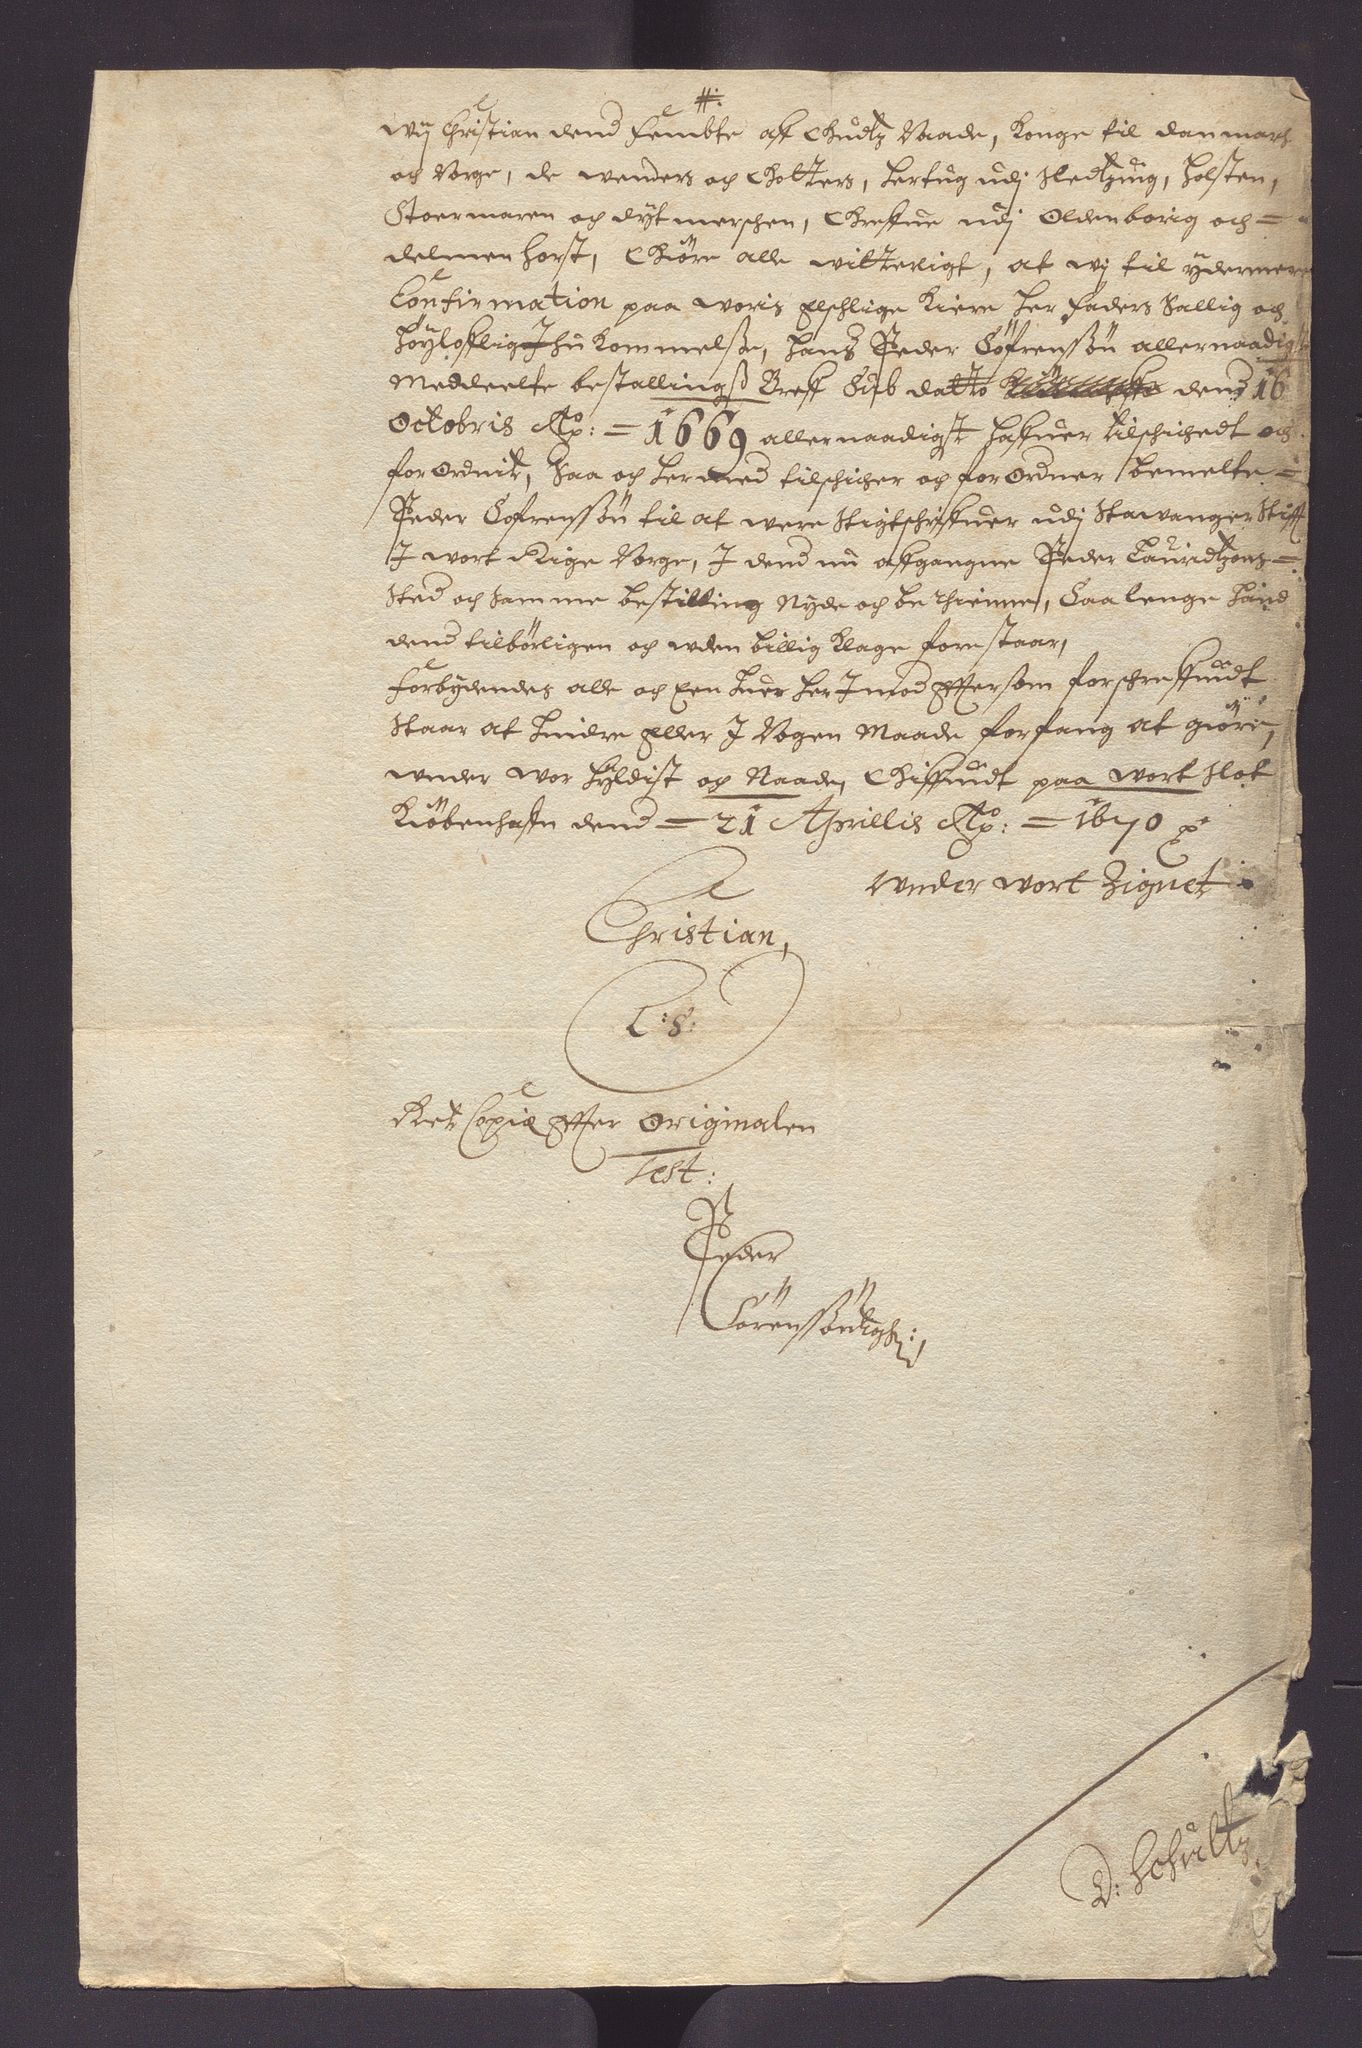 #:
Wij Christian dend Fembte aff Gudtz Naade, Konge til Danmarck
och Norge, de Wenders och Gotters, Hertug udj Sledtzuig, Holsten,
Stoermaren och Dytmerschen, Greffue udj Oldenborig och =
Delmenhorst, Giöre alle witterligt, at wij til ydermere
Confirmation paa woris Elschlige Kiere Her Faders Sallig och
Höyloflig Ihukommelse, hans Peder Söfrenssön allernaadigst
Meddeelte bestallingsz Breff Sub datto dend 16
Octobris Ao: = 1669 allernaadigst haffuer tilschichedt och
forordnit, Saa och hermed tilschicher och forordner bemelte =
Peder Söfrenssön til at were Stigtschriffuer udj Stawanger Stifft
I wort Rige Norge, I dend nu affgangne Peder Lauridtzens =
Sted och samme bestilling Nyde och bethienne, Saa lenge hand
dend tilbörligen och uden billig Klage forestaar,
Forbydendes alle och Een huer her Imod Effter som forschreffuidt
Staar at hindre Eller I Nogen Maade forfang at giöre,
under wor hyldist och Naade, Giffuidt paa wort Slot
Kiöbenhafn dend = 21 Aprillis Ao: = 1670
Under wort Zignet
Christian,
L: S:
Ret Copie Effter Originalen
Test:
Peder
Sörenssön
D: Schultz